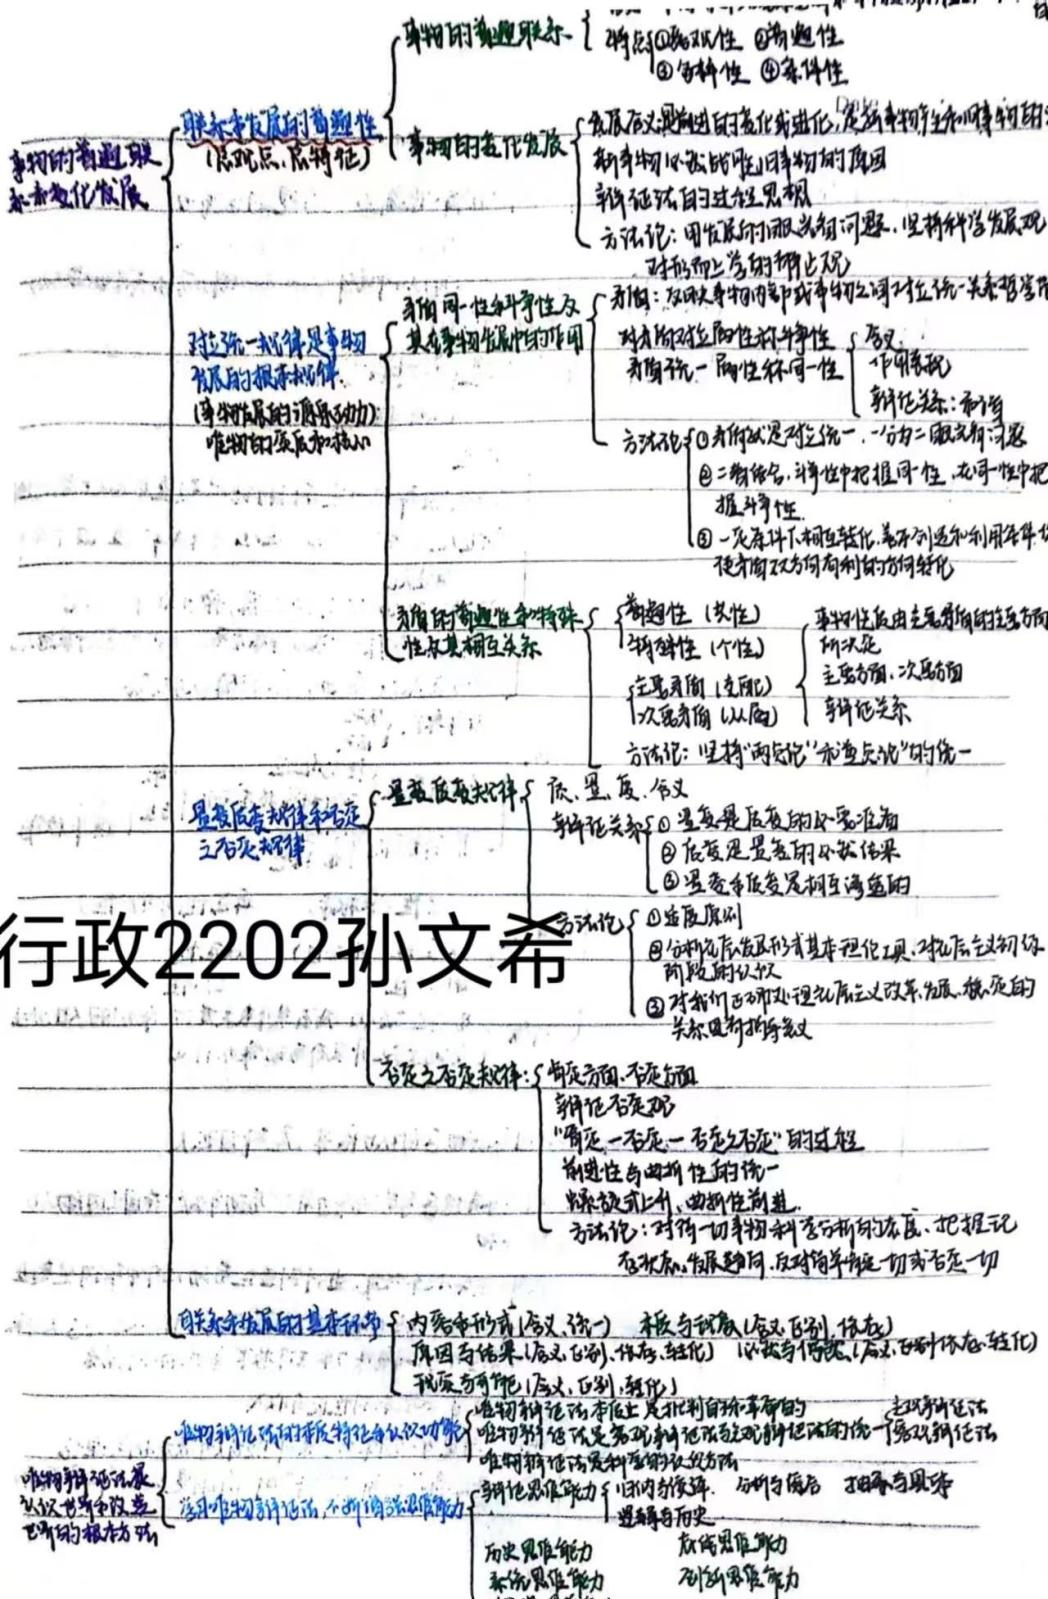 事物的普遍联系
特点 ①客观性 ②普遍性
③多样性 ④条件性
联系和发展的普遍性
(总观点、总特征)
事物的普遍联
系和变化发展
事物的变化发展
发展含义是前进的变化或进化,
新事物必战胜旧事物的原因
辩证法的过程思想
方法论:用发展的眼光看问题、坚持科学发展观
对形而上学的静止观
对立统一规律是事物
发展的根本规律
(事物发展的源泉动力)
唯物的实质和核心
矛盾同一性斗争性及
其在事物发展中的作用
矛盾:反映事物内部或事物之间对立统一关系哲学范
对矛盾对立属性称斗争性
矛盾统一属性称同一性
含义
作用表现
辩证关系:和谐
方法论 ①矛盾就是对立统一,一分为二眼光看问题
②二者结合,斗争性中把握同一性,在同一性中把
握斗争性.
③一定条件下相互转化,善于创造和利用条件,
使矛盾双方向有利的方向转化
矛盾的普遍性和特殊
性及其相互关系
普遍性(共性)
特殊性(个性)
主要矛盾(支配)
次要矛盾(从属)
事物性质由主要矛盾的主要方面
所决定
主要方面、次要方面
辩证关系
方法论:坚持"两点论"和重点论"的统一
量变质变规律和否定
之否定规律
量变质变规律
质、量、度、含义
辩证关系 ①量变是质变的必要准备
②质变是量变的必然结果
③量变和质变是相互渗透的
方法论 ①适度原则
②分析社会发展形式基本理论工具、对社会主义初级
阶段的认识
③对我们正确处理社会主义改革、发展、稳定的
关系具有指导意义
行政2202孙文希
否定之否定规律:肯定方面、否定方面
辩证否定观
"肯定一否定一否定之否定"的过程
前进性与曲折性的统一
螺旋式上升,曲折性前进.
方法论:对待一切事物科学分析的态度、把握记
否状态、发展趋向,反对简单肯定一切或否定一切
联系和发展的基本环节
内容和形式(含义、统一) 本质与现象(含义、区别、依存)
原因与结果(含义、区别、依存、转化) 必然与偶然(含义、区别、依存、转化)
现实与可能(含义、区别、转化)
唯物辩证法是
认识世界和改造
世界的根本方法
唯物辩证法的本质特征和认识功能
唯物辩证法本质上是批判的和革命的
唯物辩证法是客观辩证法与主观辩证法的统一
主观辩证法
客观辩证法
唯物辩证法是科学的认识方法
学习唯物辩证法,不断增强思维能力
辩证思维能力 归纳与演绎 分析与综合 抽象与具体
逻辑与历史
历史思维能力 底线思维能力
系统思维能力 创新思维能力